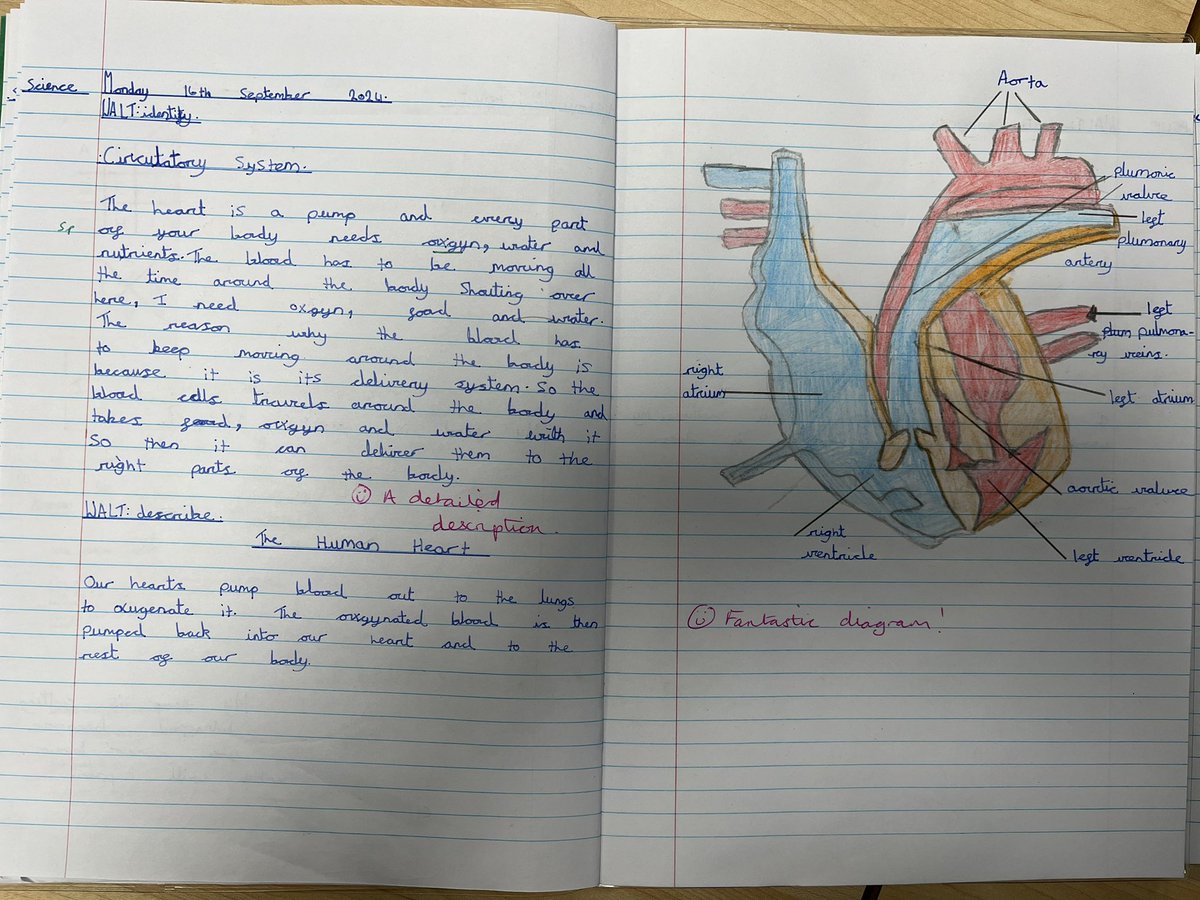 Science Monday 16th September 2024.
WALT: identify.
Circutatory System.
The heart is a pump and every part
sp of your body needs oxgyn, water and
nutrients. The blood has to be moving all
the time around the body Shouting over
here, I need oxgyn, food and water.
The reason why the blood has
to keep moving around the body is
because it is its delivery system. So the
blood cells travels around the body and
takes food, oxgyn and water with it
So then it can deliver them to the
right parts of the body.
☺ A detailed
description.
WALT: describe.
The Human Heart
Our hearts pump blood out to the lungs
to oxugenate it. The oxgynated blood is then
pumped back into our heart and to the
rest of our body.
Aorta
plumonic
valve
left
plumonary
artery
left
plum pulmona-
ry veins.
right
atrium
left atrium
aoratic valuve
right
ventricle
left ventricle
☺ Fantastic diagram!